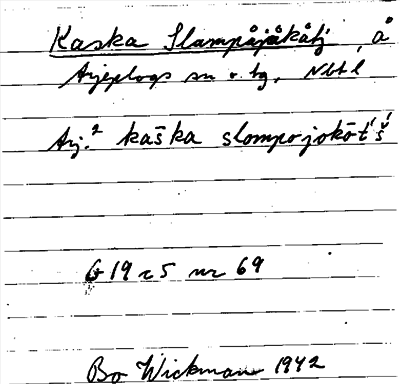 Kaska Slampåjåkåtj, å
Arjeplogs sn o. tg, Nbtl
Arj.² kaška slompojokōt́š́
G 19 c 5 nr 69
Bo Wickman 1942